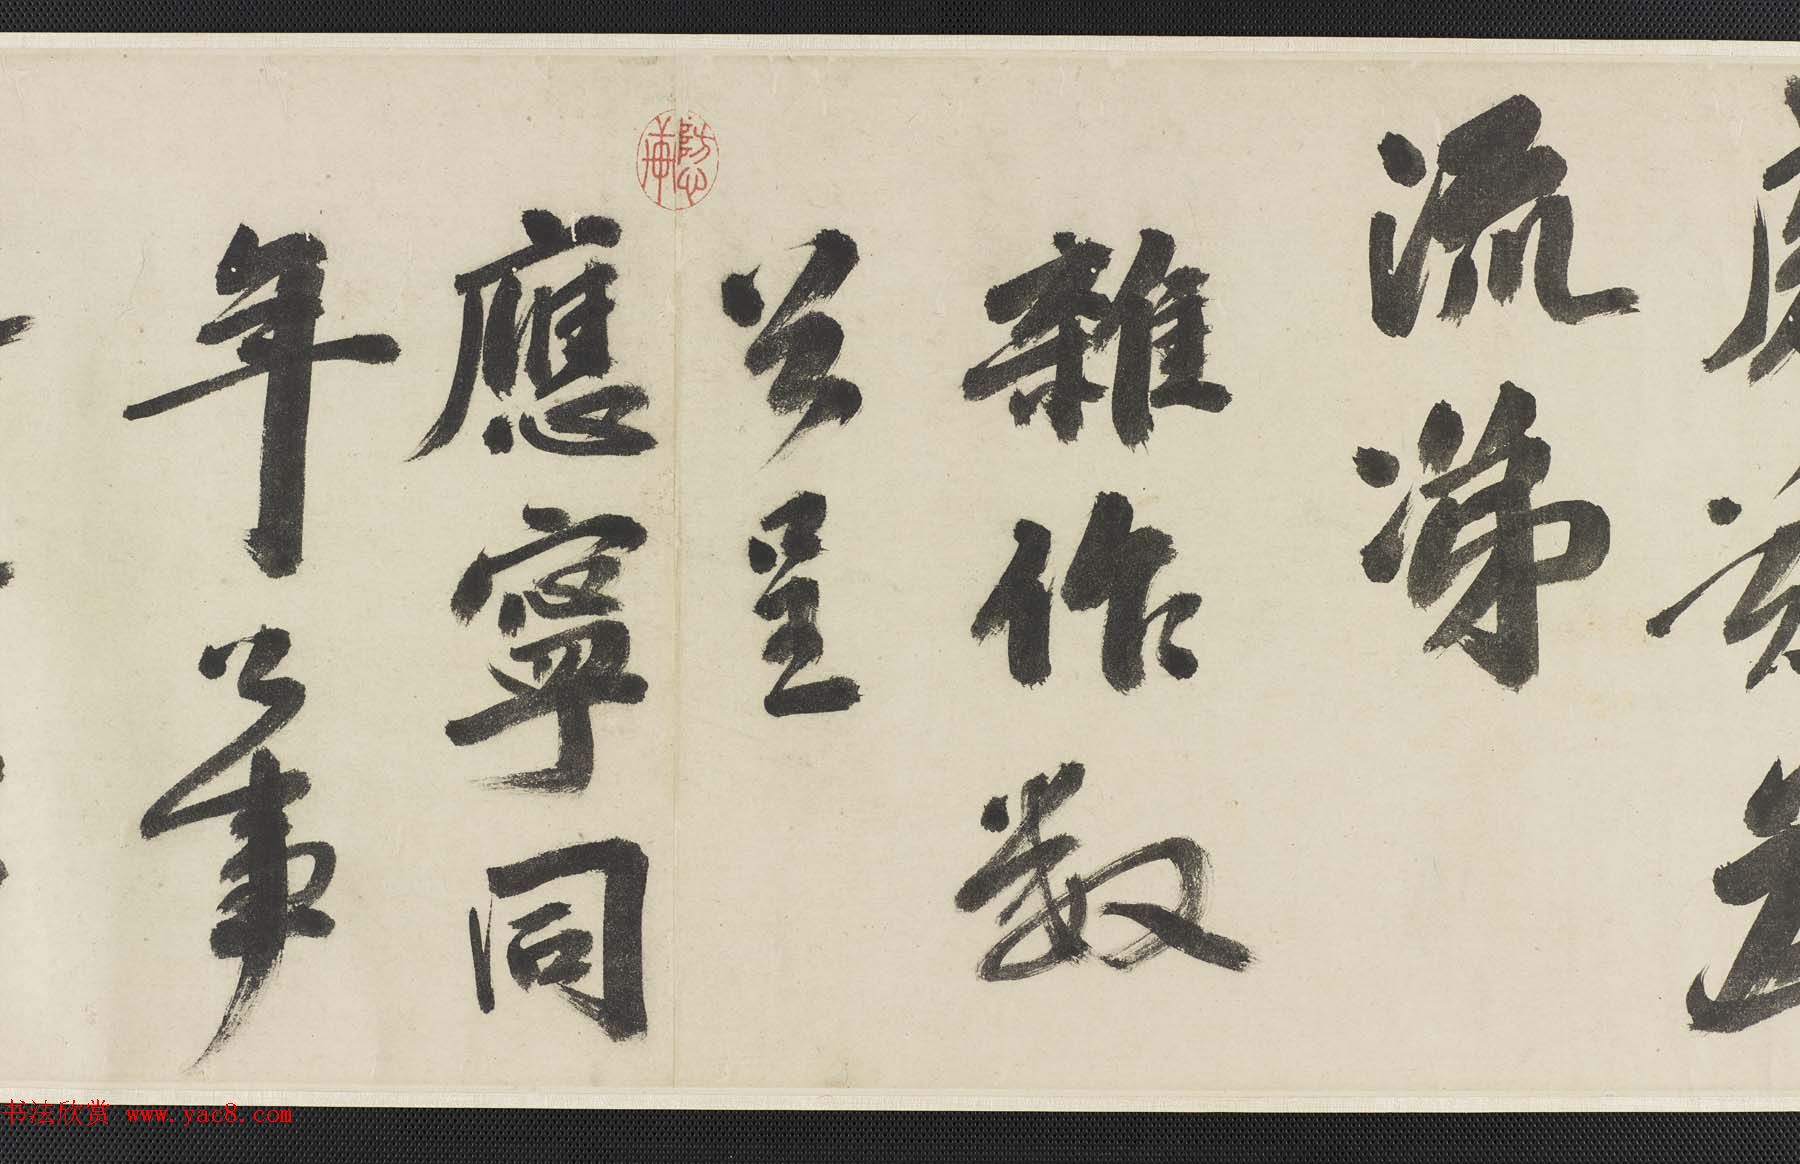 流涕
雜作數
首呈
應寧同
年公事
书法欣赏 www.yac8.com